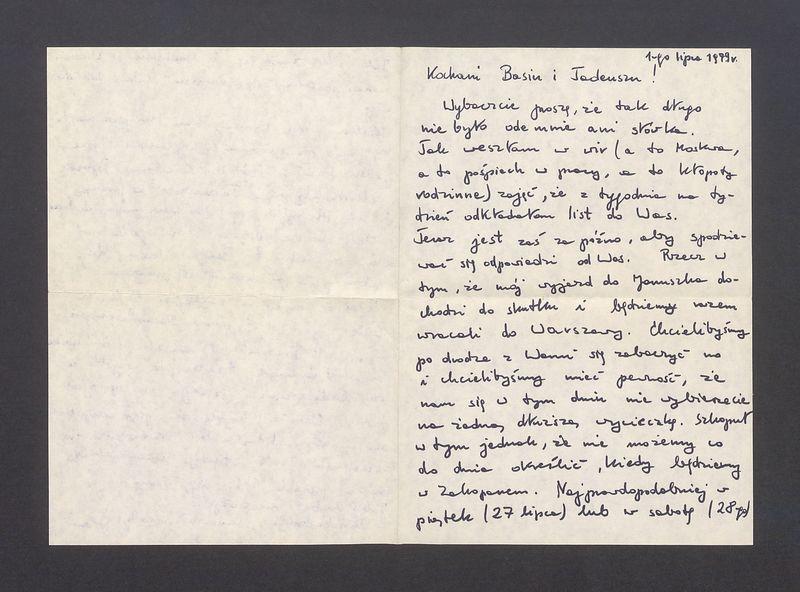 1-go lipca 1979 r.
Kochani Basiu i Tadeuszu!
Wybaczcie proszę, że tak długo
nie było ode mnie ani słówka.
Tak weszłam w wir (a to Moskwa,
a to pośpiech w pracy, a to kłopoty
rodzinne) zajęć, że z tygodnia na ty-
dzień odkładałam list do Was.
Teraz jest zaś za późno, aby spodzie-
wać się odpowiedzi od Was. Rzecz w
tym, że mój wyjazd do Januszka do-
chodzi do skutku i będziemy razem
wracali do Warszawy. Chcielibyśmy
po drodze z Wami się zobaczyć no
i chcielibyśmy mieć pewność, że
nam się w tym dniu nie wybierzecie
na żadną dłuższą wycieczkę. Szkopuł
w tym jednak, że nie możemy co
do dnia określić, kiedy będziemy
w Zakopanem. Najprawdopodobniej w
piątek (27 lipca) lub w sobotę (28 go)